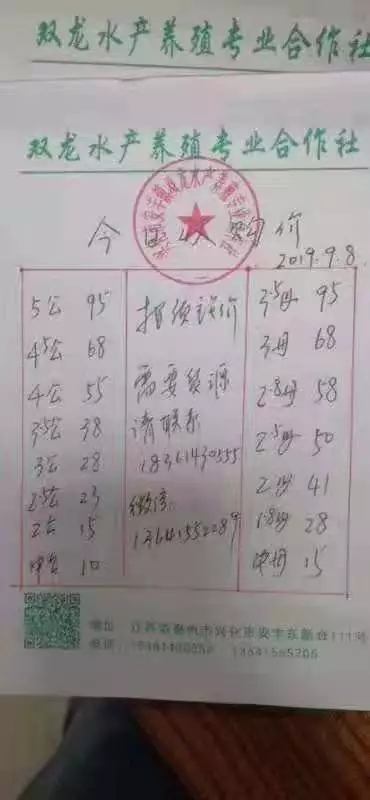 双龙水产养殖专业合作社
双龙水产养殖专业合作社
今
价
2019.9.8.
5公 95
4.5公 68
4公 55
3.5公 38
3公 28
2.5公 23
2公 15
中公 10
需要货源
请联系
18361430555
微信
13641552089
3.5母 95
3母 68
2.8母 58
2.5母 50
2母 41
1.8母 28
中母 15
地址：江苏省泰州市兴化市安丰东新合111号
电话：